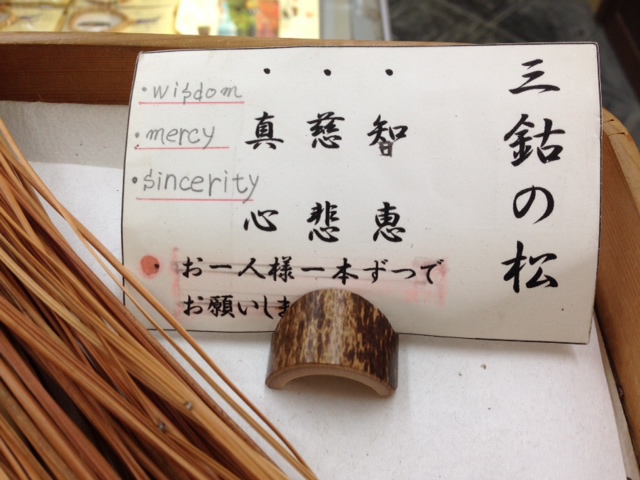 三鈷の松
・智恵
・慈悲
・真心
・wisdom
・mercy
・sincerity
・お一人様一本ずつで
お願いしま